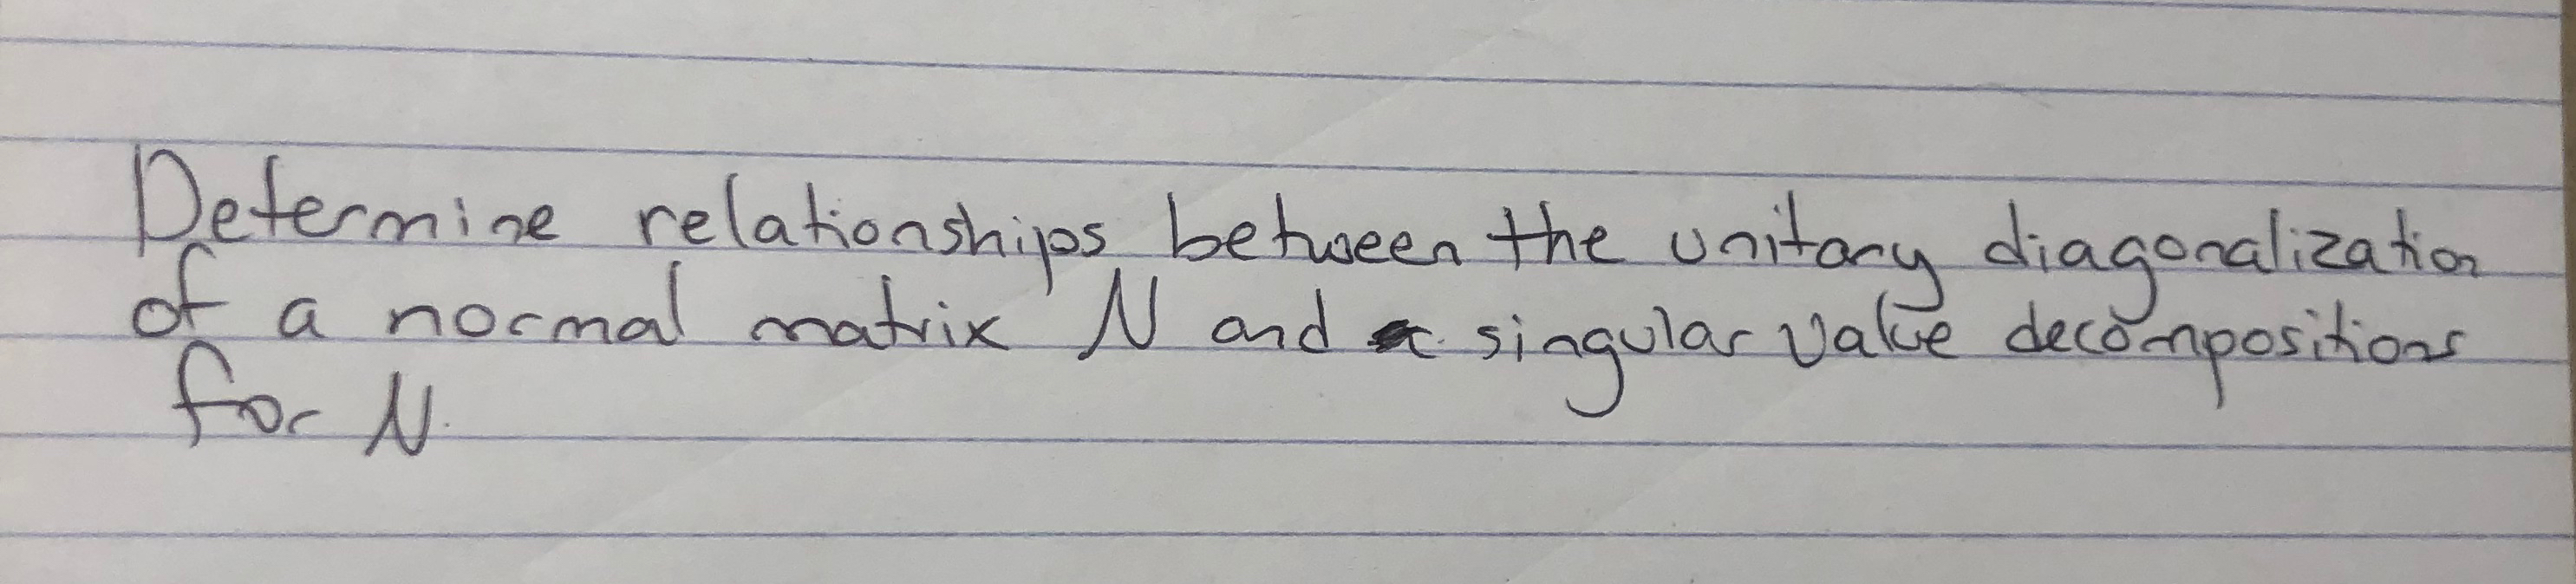 Determine relationships between the unitary diagonalization
of a normal matrix N and singular value decompositions
for N.